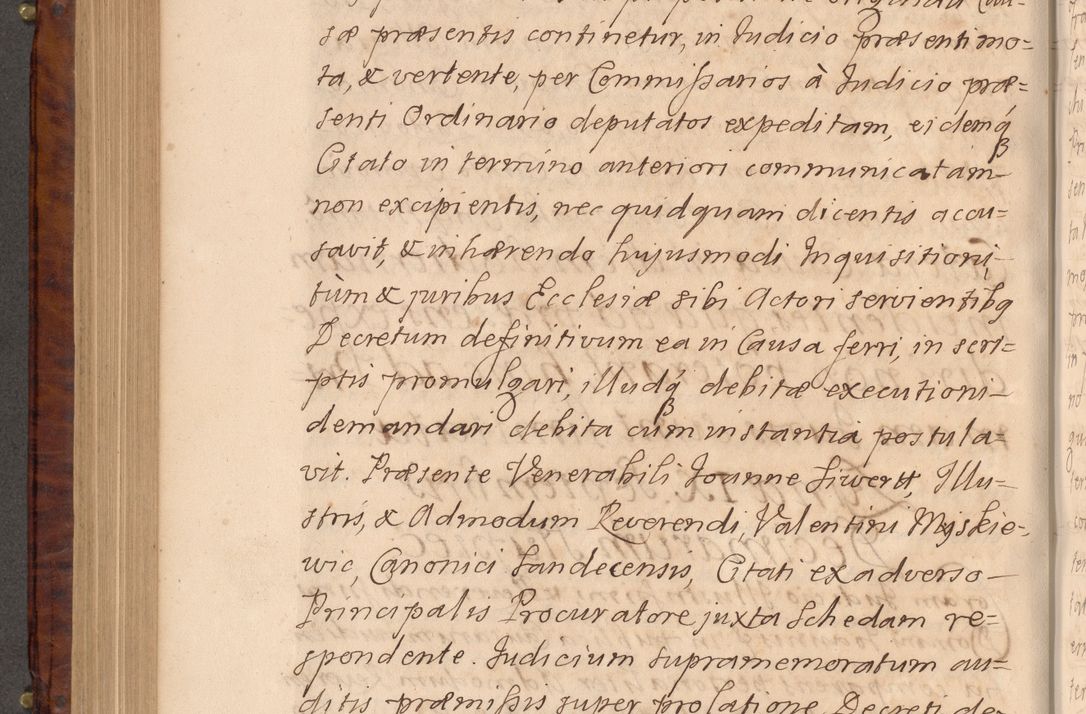 sæ præsentis continetur, in Iudicio præsenti mo=
ta, & vertente, per Commißarios à Iudicio præ=
senti Ordinario deputatos expeditam, eidemq́
Citato in termino anteriori communicatam
non excipientis, nec quidquam dicentis accu=
savit, & inhærendo hujusmodi Inquisitioni,
tùm & juribus Ecclesiæ sibi Actori servientibq
Decretum definitivum ea in Causa ferri, in scri=
ptis promulgari, illudq́ debitæ executioni
demandari debita cum instantia postula=
vit. Præsente Venerabili Ioanne Siwertt, Illu=
stris, & Admodum Reverendi, Valentini Myskie=
wic, Canonici Sandecensis, Citati ex adverso
Principalis Procuratore juxta Schedam re=
spondente. Iudicium supramemoratum au=
ditis præmißis super prolatione Decreti de=